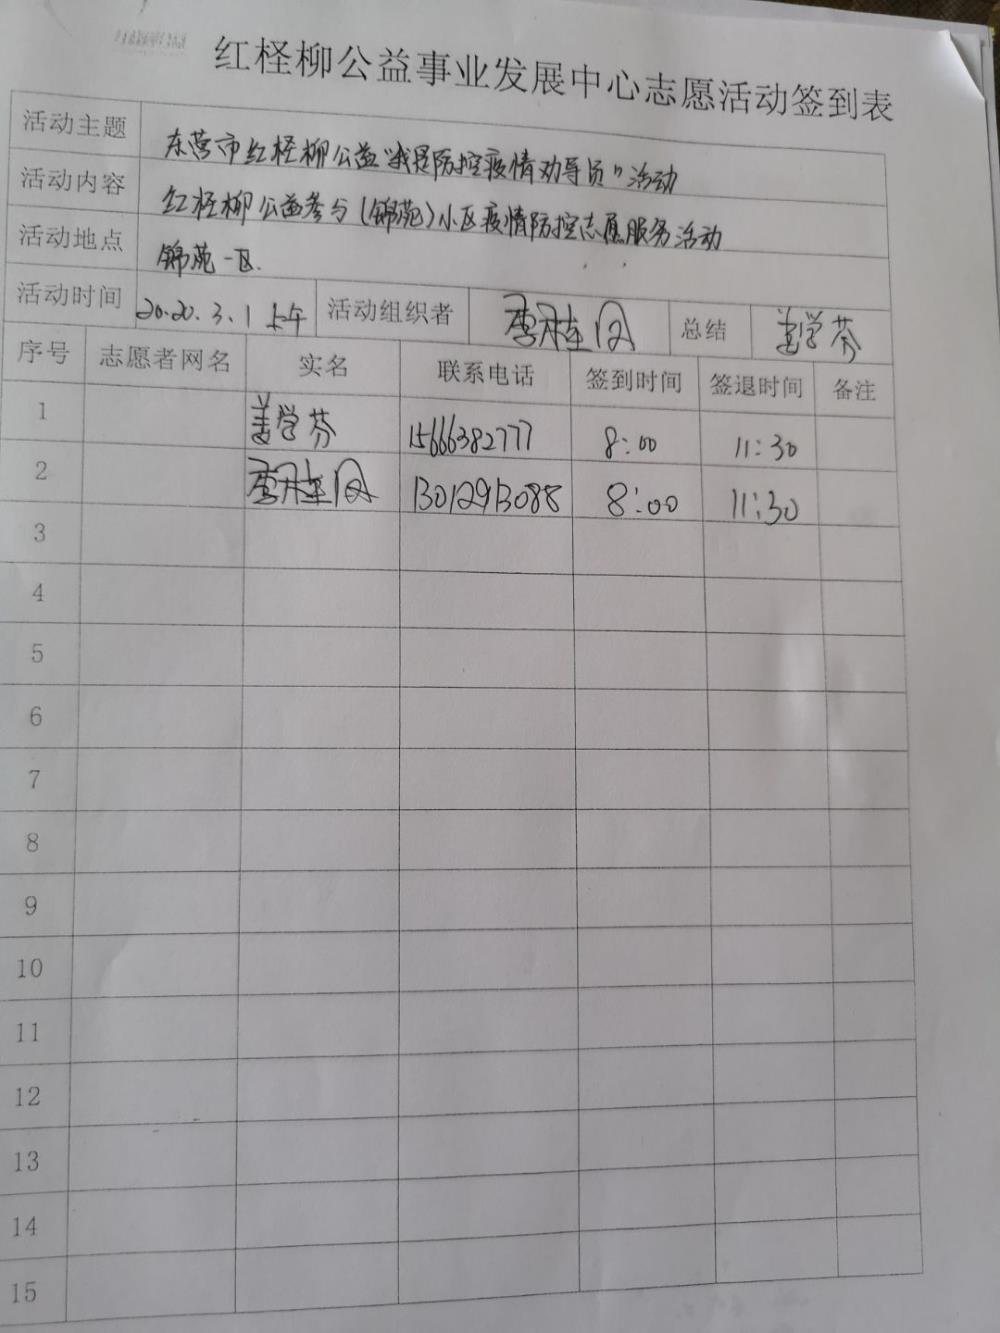 红柽柳公益事业发展中心志愿活动签到表
活动主题 东营市红柽柳公益“我是防控疫情劝导员”活动
活动内容 红柽柳公益参与(锦苑)小区疫情防控志愿服务活动
活动地点 锦苑一区.
活动时间 2020.3.1上午 活动组织者 李桂 总结 姜学芬
序号 志愿者网名 实名 联系电话 签到时间 签退时间 备注
1 姜学芬 15666382777 8:00 11:30
2 李桂 13012913088 8:00 11:30
3
4
5
6
7
8
9
10
11
12
13
14
15